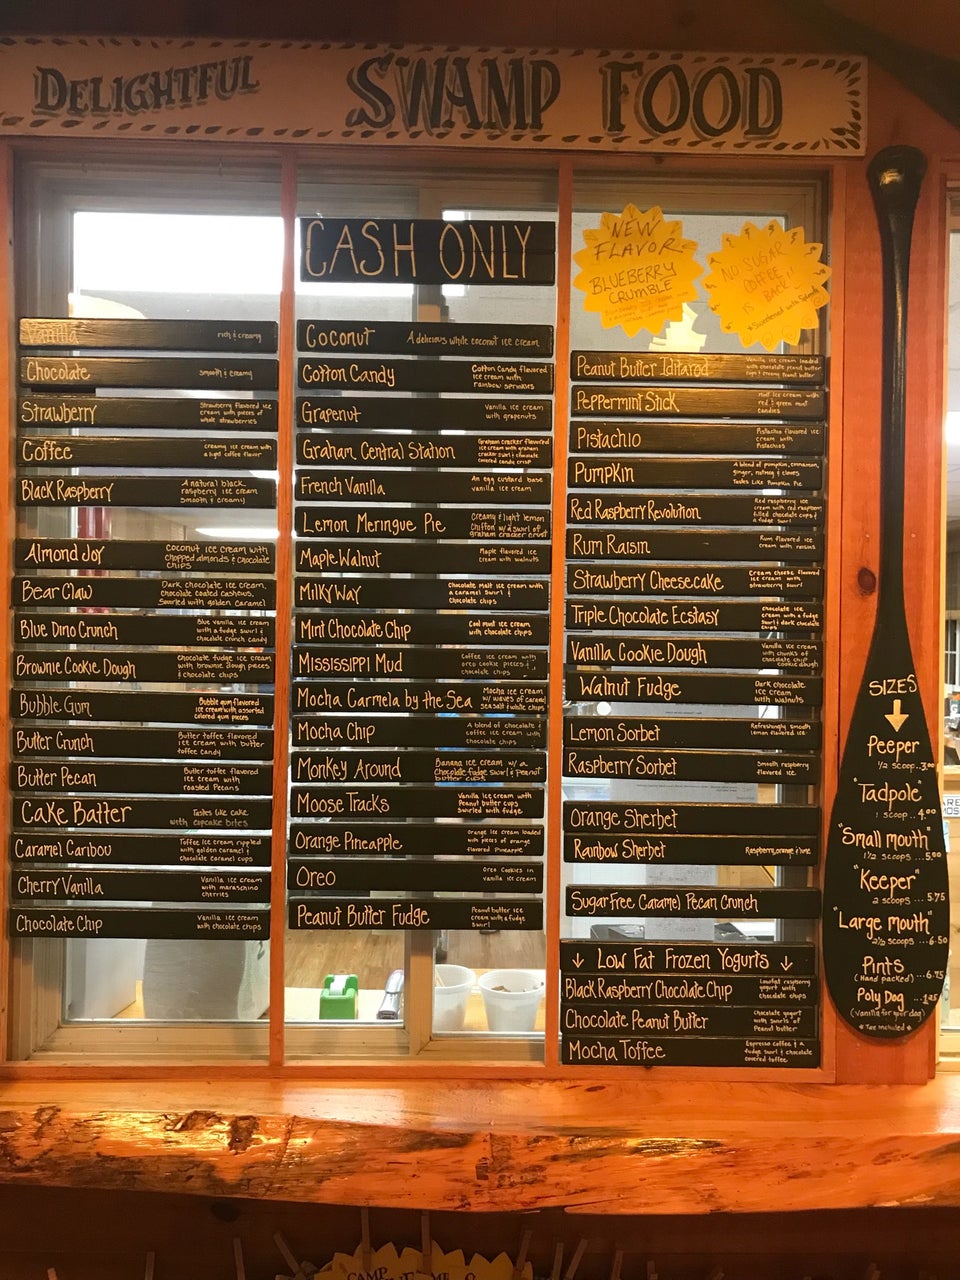 DELIGHTFUL SWAMP FOOD
CASH ONLY
NEW
FLAVOR
BLUEBERRY
CRUMBLE
NO SUGAR
COFFEE
IS BACK!!
Vanilla
rich & creamy
Chocolate
smooth & creamy
Strawberry
Strawberry flavored ice
cream with pieces of
whole strawberries
Coffee
creamy ice cream with
a light coffee flavor
Black Raspberry
A natural black
raspberry ice cream
smooth & creamy
Almond Joy
Coconut ice cream with
chopped almonds & chocolate
chips
Bear Claw
Dark chocolate ice cream,
chocolate coated cashews,
swirled with golden caramel
Blue Dino Crunch
Blue vanilla ice cream
with a fudge swirl &
chocolate crunch candy
Brownie Cookie Dough
Chocolate fudge ice cream
with brownie dough pieces
& chocolate chips
Bubble Gum
Bubble gum flavored
ice cream with assorted
colored gum pieces
Butter Crunch
Butter toffee flavored
ice cream with butter
toffee candy
Butter Pecan
Butter toffee flavored
ice cream with
roasted Pecans
Cake Batter
Tastes like cake
with cupcake bites
Caramel Caribou
Toffee ice cream rippled
with golden caramel &
chocolate caramel cups
Cherry Vanilla
Vanilla ice cream
with maraschino
cherries
Chocolate Chip
Vanilla ice cream
with chocolate chips
Coconut
A delicious white coconut ice cream
Cotton Candy
Cotton Candy flavored
ice cream with
rainbow sprinkles
Grapenut
Vanilla ice cream
with grapenuts
Graham Central Station
Graham cracker flavored
ice cream with graham
cracker swirl & chocolate
covered candy crisp
French Vanilla
An egg custard base
vanilla ice cream
Lemon Meringue Pie
Creamy & light lemon
chiffon w/a swirl of
graham cracker crust
Maple Walnut
Maple flavored
ice cream with
walnuts
Milky Way
Chocolate malt ice cream with
a caramel swirl &
chocolate chips
Mint Chocolate Chip
Cool mint ice cream
with chocolate chips
Mississippi Mud
Coffee ice cream with
oreo cookie pieces &
chocolate chips
Mocha Carmela by the Sea
Mocha ice cream
w/ waves of caramel
sea salt & white chips
Mocha Chip
A blend of chocolate &
coffee ice cream with
chocolate chips
Monkey Around
Banana ice cream w/ a
chocolate fudge swirl & peanut
butter cups
Moose Tracks
Vanilla ice cream with
Peanut butter cups
swirled with fudge
Orange Pineapple
Orange ice cream loaded
with pieces of orange
flavored Pineapple
Oreo
Oreo Cookies in
Vanilla ice cream
Peanut Butter Fudge
Peanut butter ice
cream with a fudge
swirl
Peanut Butter Iditarod
Vanilla ice cream loaded
with chocolate peanut butter
cups & creamy peanut butter
Peppermint Stick
Mint ice cream with
red & green mint
candies
Pistachio
Pistachio flavored ice
cream with
Pistachios
Pumpkin
A blend of pumpkin, cinnamon,
ginger, nutmeg & cloves.
Tastes Like Pumpkin Pie
Red Raspberry Revolution
Red raspberry ice
cream with red raspberry
filled chocolate cups &
a fudge swirl
Rum Raisin
Rum flavored ice
cream with raisins
Strawberry Cheesecake
Cream cheese flavored
ice cream with
strawberry swirl
Triple Chocolate Ecstasy
chocolate ice
cream with a fudge
swirl & dark chocolate
chips
Vanilla Cookie Dough
Vanilla ice cream
with chunks of
chocolate chip
cookie dough
Walnut Fudge
Dark chocolate
ice cream
with walnuts
Lemon Sorbet
Refreshingly smooth
lemon flavored ice
Raspberry Sorbet
Smooth raspberry
flavored ice
Orange Sherbet
Rainbow Sherbet
Raspberry, orange & lime
Sugar Free Caramel Pecan Crunch
↓ Low Fat Frozen Yogurts ↓
Black Raspberry Chocolate Chip
Lowfat raspberry
yogurt with
chocolate chips
Chocolate Peanut Butter
Chocolate yogurt
with swirls of
Peanut butter
Mocha Toffee
Espresso coffee & a
fudge swirl & chocolate
covered toffee
SIZES
Peeper
1/2 scoop..3.00
"Tadpole"
1 scoop..4.00
"Small mouth"
1 1/2 scoops...5.00
"Keeper"
2 scoops...5.75
"Large mouth"
2 1/2 scoops...6.50
Pints
(Hand packed)...6.75
Poly Dog ...1.25
(Vanilla for your dog)
*Tax included*
CAMP